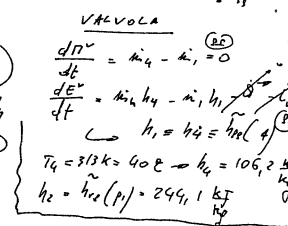 VALVOLA
dM^v/dt = ṁ4 - ṁ1 = 0 (R.S.)
dE^v/dt = ṁ4 h4 - ṁ1 h1 - Q̇
↳ h1 = h4 =
T4 = 313K = 40°C → h4 = 106,2 kJ/kg
h2 = h̃vs(p1) = 244,1 kJ/kg